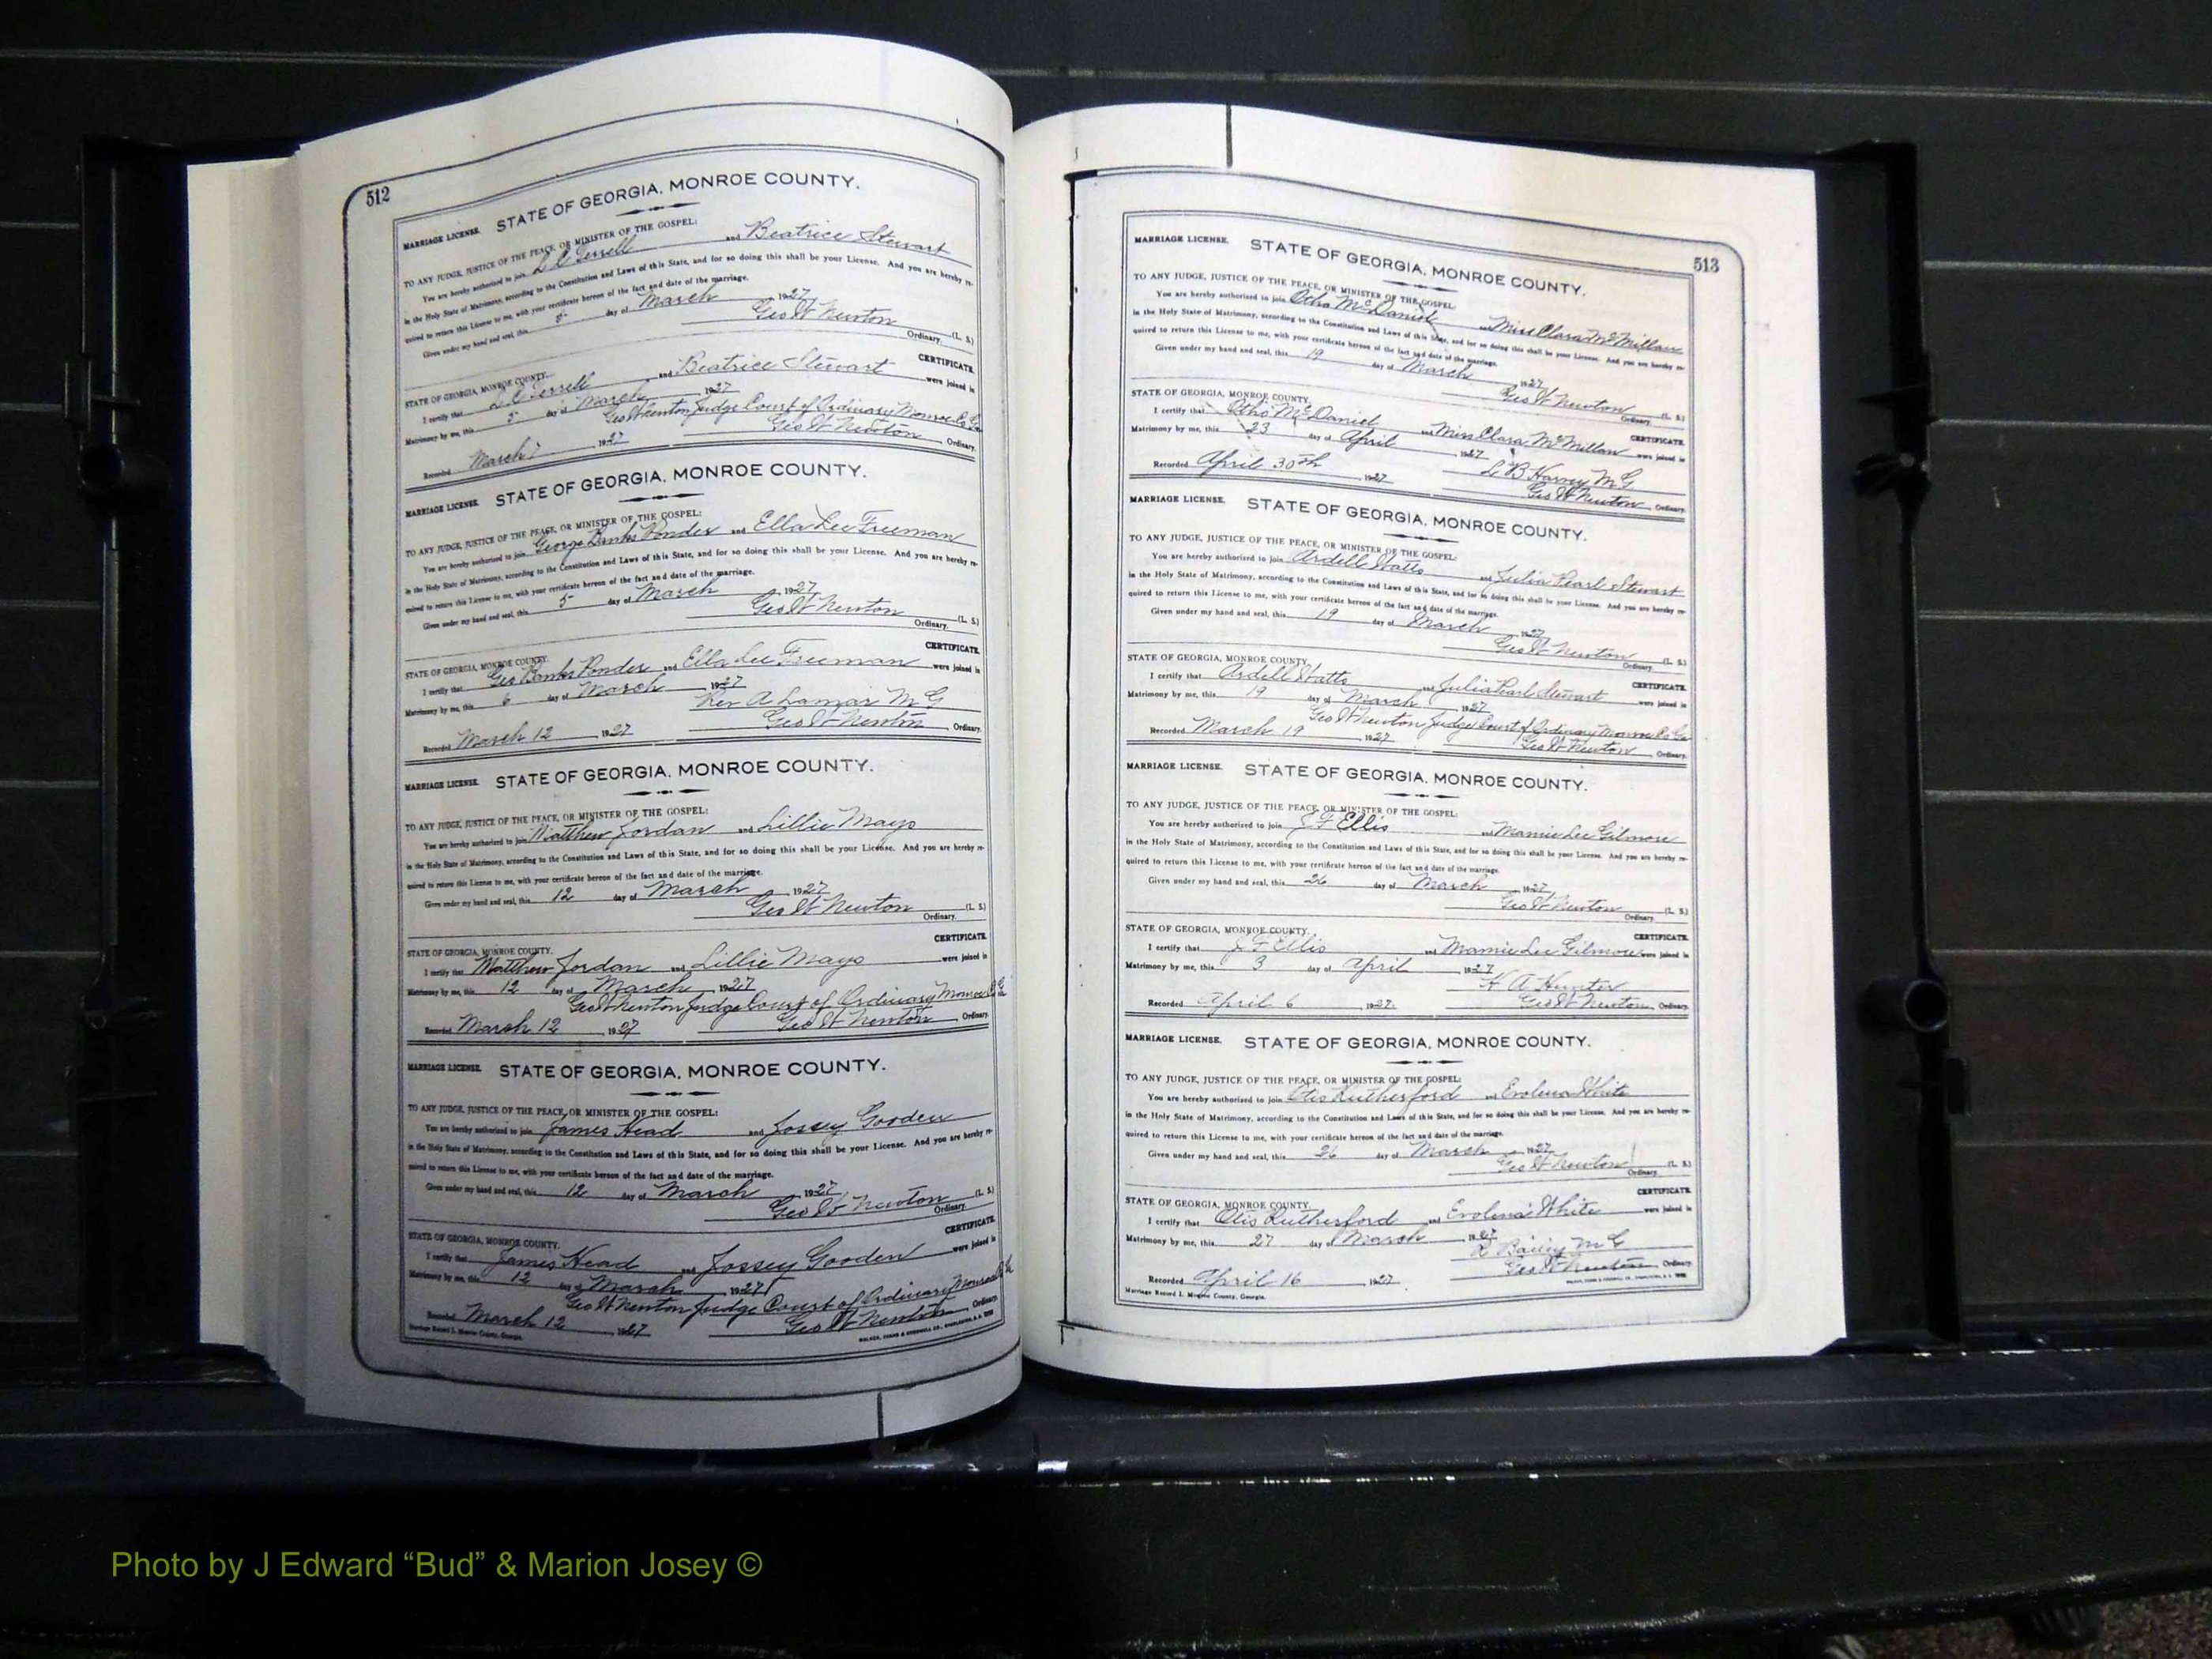 512
STATE OF GEORGIA, MONROE COUNTY.
MARRIAGE LICENSE.
TO ANY JUDGE, JUSTICE OF THE PEACE, OR MINISTER OF THE GOSPEL:
You are hereby authorized to join L C Terrell and Beatrice Stewart
in the Holy State of Matrimony, according to the Constitution and Laws of this State, and for so doing this shall be your License. And you are hereby re-
quired to return this License to me, with your certificate hereon of the fact and date of the marriage.
Given under my hand and seal, this 5 day of March 1927
Geo W Newton (L. S.)
Ordinary.
STATE OF GEORGIA, MONROE COUNTY. CERTIFICATE.
I certify that L C Terrell and Beatrice Stewart were joined in
Matrimony by me, this 5 day of March 1927
Geo W Newton Judge Court of Ordinary Monroe Co Ga
Recorded March 7 1927 Geo W Newton, Ordinary.
MARRIAGE LICENSE. STATE OF GEORGIA, MONROE COUNTY.
TO ANY JUDGE, JUSTICE OF THE PEACE, OR MINISTER OF THE GOSPEL:
You are hereby authorized to join George Banks Ponder and Ella Lee Freeman
in the Holy State of Matrimony, according to the Constitution and Laws of this State, and for so doing this shall be your License. And you are hereby re-
quired to return this License to me, with your certificate hereon of the fact and date of the marriage.
Given under my hand and seal, this 5 day of March 1927
Geo W Newton (L. S.)
Ordinary.
STATE OF GEORGIA, MONROE COUNTY. CERTIFICATE.
I certify that Geo Banks Ponder and Ella Lee Freeman were joined in
Matrimony by me, this 6 day of March 1927
Rev A Lamar M G
Recorded March 12 1927 Geo W Newton, Ordinary.
MARRIAGE LICENSE. STATE OF GEORGIA, MONROE COUNTY.
TO ANY JUDGE, JUSTICE OF THE PEACE, OR MINISTER OF THE GOSPEL:
You are hereby authorized to join Matthew Jordan and Lillie Mays
in the Holy State of Matrimony, according to the Constitution and Laws of this State, and for so doing this shall be your License. And you are hereby re-
quired to return this License to me, with your certificate hereon of the fact and date of the marriage.
Given under my hand and seal, this 12 day of March 1927
Geo W Newton (L. S.)
Ordinary.
STATE OF GEORGIA, MONROE COUNTY. CERTIFICATE.
I certify that Matthew Jordan and Lillie Mays were joined in
Matrimony by me, this 12 day of March 1927
Geo W Newton Judge Court of Ordinary Monroe Co Ga
Recorded March 12 1927 Geo W Newton, Ordinary.
MARRIAGE LICENSE. STATE OF GEORGIA, MONROE COUNTY.
TO ANY JUDGE, JUSTICE OF THE PEACE, OR MINISTER OF THE GOSPEL:
You are hereby authorized to join James Head and Jossey Gooden
in the Holy State of Matrimony, according to the Constitution and Laws of this State, and for so doing this shall be your License. And you are hereby re-
quired to return this License to me, with your certificate hereon of the fact and date of the marriage.
Given under my hand and seal, this 12 day of March 1927
Geo W Newton (L. S.)
Ordinary.
STATE OF GEORGIA, MONROE COUNTY. CERTIFICATE.
I certify that James Head and Jossey Gooden were joined in
Matrimony by me, this 12 day of March 1927
Geo W Newton Judge Court of Ordinary Monroe Co Ga
Recorded March 12 1927 Geo W Newton, Ordinary.
Marriage Record I. Monroe County, Georgia.
513
MARRIAGE LICENSE. STATE OF GEORGIA, MONROE COUNTY.
TO ANY JUDGE, JUSTICE OF THE PEACE, OR MINISTER OF THE GOSPEL:
You are hereby authorized to join Otho McDaniel and Miss Clara McMillan
in the Holy State of Matrimony, according to the Constitution and Laws of this State, and for so doing this shall be your License. And you are hereby re-
quired to return this License to me, with your certificate hereon of the fact and date of the marriage.
Given under my hand and seal, this 19 day of March 1927
Geo W Newton (L. S.)
Ordinary.
STATE OF GEORGIA, MONROE COUNTY. CERTIFICATE.
I certify that Otho McDaniel and Miss Clara McMillan were joined in
Matrimony by me, this 23 day of April 1927
L B Harvey M G
Recorded April 30th 1927 Geo W Newton, Ordinary.
MARRIAGE LICENSE. STATE OF GEORGIA, MONROE COUNTY.
TO ANY JUDGE, JUSTICE OF THE PEACE, OR MINISTER OF THE GOSPEL:
You are hereby authorized to join Ardell Watts and Julia Pearl Stewart
in the Holy State of Matrimony, according to the Constitution and Laws of this State, and for so doing this shall be your License. And you are hereby re-
quired to return this License to me, with your certificate hereon of the fact and date of the marriage.
Given under my hand and seal, this 19 day of March 1927
Geo W Newton (L. S.)
Ordinary.
STATE OF GEORGIA, MONROE COUNTY. CERTIFICATE.
I certify that Ardell Watts and Julia Pearl Stewart were joined in
Matrimony by me, this 19 day of March 1927
Geo W Newton Judge Court of Ordinary Monroe Co Ga
Recorded March 19 1927 Geo W Newton, Ordinary.
MARRIAGE LICENSE. STATE OF GEORGIA, MONROE COUNTY.
TO ANY JUDGE, JUSTICE OF THE PEACE, OR MINISTER OF THE GOSPEL:
You are hereby authorized to join J F Ellis and Mamie Lee Gilmore
in the Holy State of Matrimony, according to the Constitution and Laws of this State, and for so doing this shall be your License. And you are hereby re-
quired to return this License to me, with your certificate hereon of the fact and date of the marriage.
Given under my hand and seal, this 26 day of March 1927
Geo W Newton (L. S.)
Ordinary.
STATE OF GEORGIA, MONROE COUNTY. CERTIFICATE.
I certify that J F Ellis and Mamie Lee Gilmore were joined in
Matrimony by me, this 3 day of April 1927
A Hunter
Recorded April 6 1927. Geo W Newton, Ordinary.
MARRIAGE LICENSE. STATE OF GEORGIA, MONROE COUNTY.
TO ANY JUDGE, JUSTICE OF THE PEACE, OR MINISTER OF THE GOSPEL:
You are hereby authorized to join Otis Rutherford and Evolena White
in the Holy State of Matrimony, according to the Constitution and Laws of this State, and for so doing this shall be your License. And you are hereby re-
quired to return this License to me, with your certificate hereon of the fact and date of the marriage.
Given under my hand and seal, this 26 day of March 1927
Geo W Newton (L. S.)
Ordinary.
STATE OF GEORGIA, MONROE COUNTY. CERTIFICATE.
I certify that Otis Rutherford and Evolena White were joined in
Matrimony by me, this 27 day of March 1927
R Bailey M G
Recorded April 16 1927 Geo W Newton, Ordinary.
Marriage Record I. Monroe County, Georgia.
Photo by J Edward “Bud” & Marion Josey ©